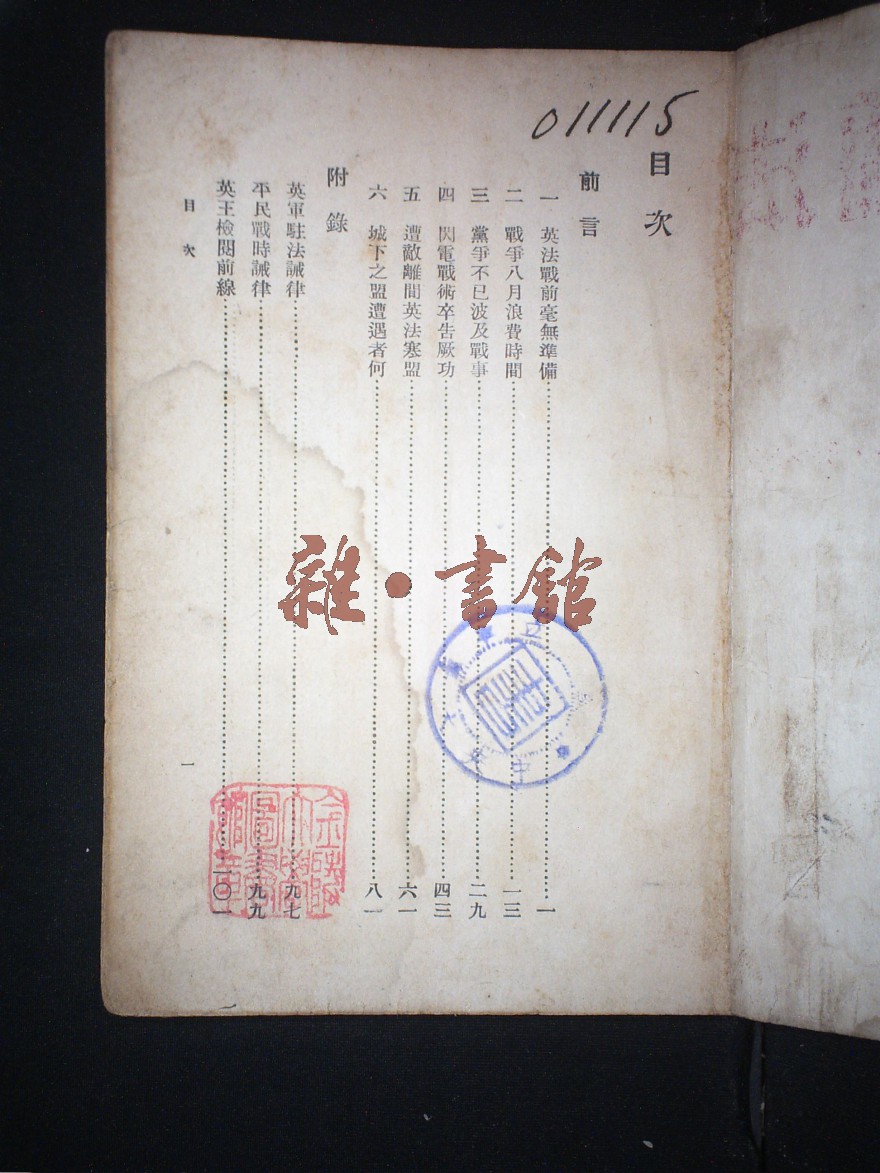 011115
目次
前言
一 英法戰前毫無準備……一
二 戰爭八月浪費時間……一三
三 黨爭不已波及戰事……二九
四 閃電戰術卒告厥功……四三
五 遭敵離間英法寒盟……六一
六 城下之盟遭遇者何……八一
附錄
英軍駐法誡律……九七
平民戰時誡律……九九
英王檢閱前線……一〇一
目次
一
雜·書館